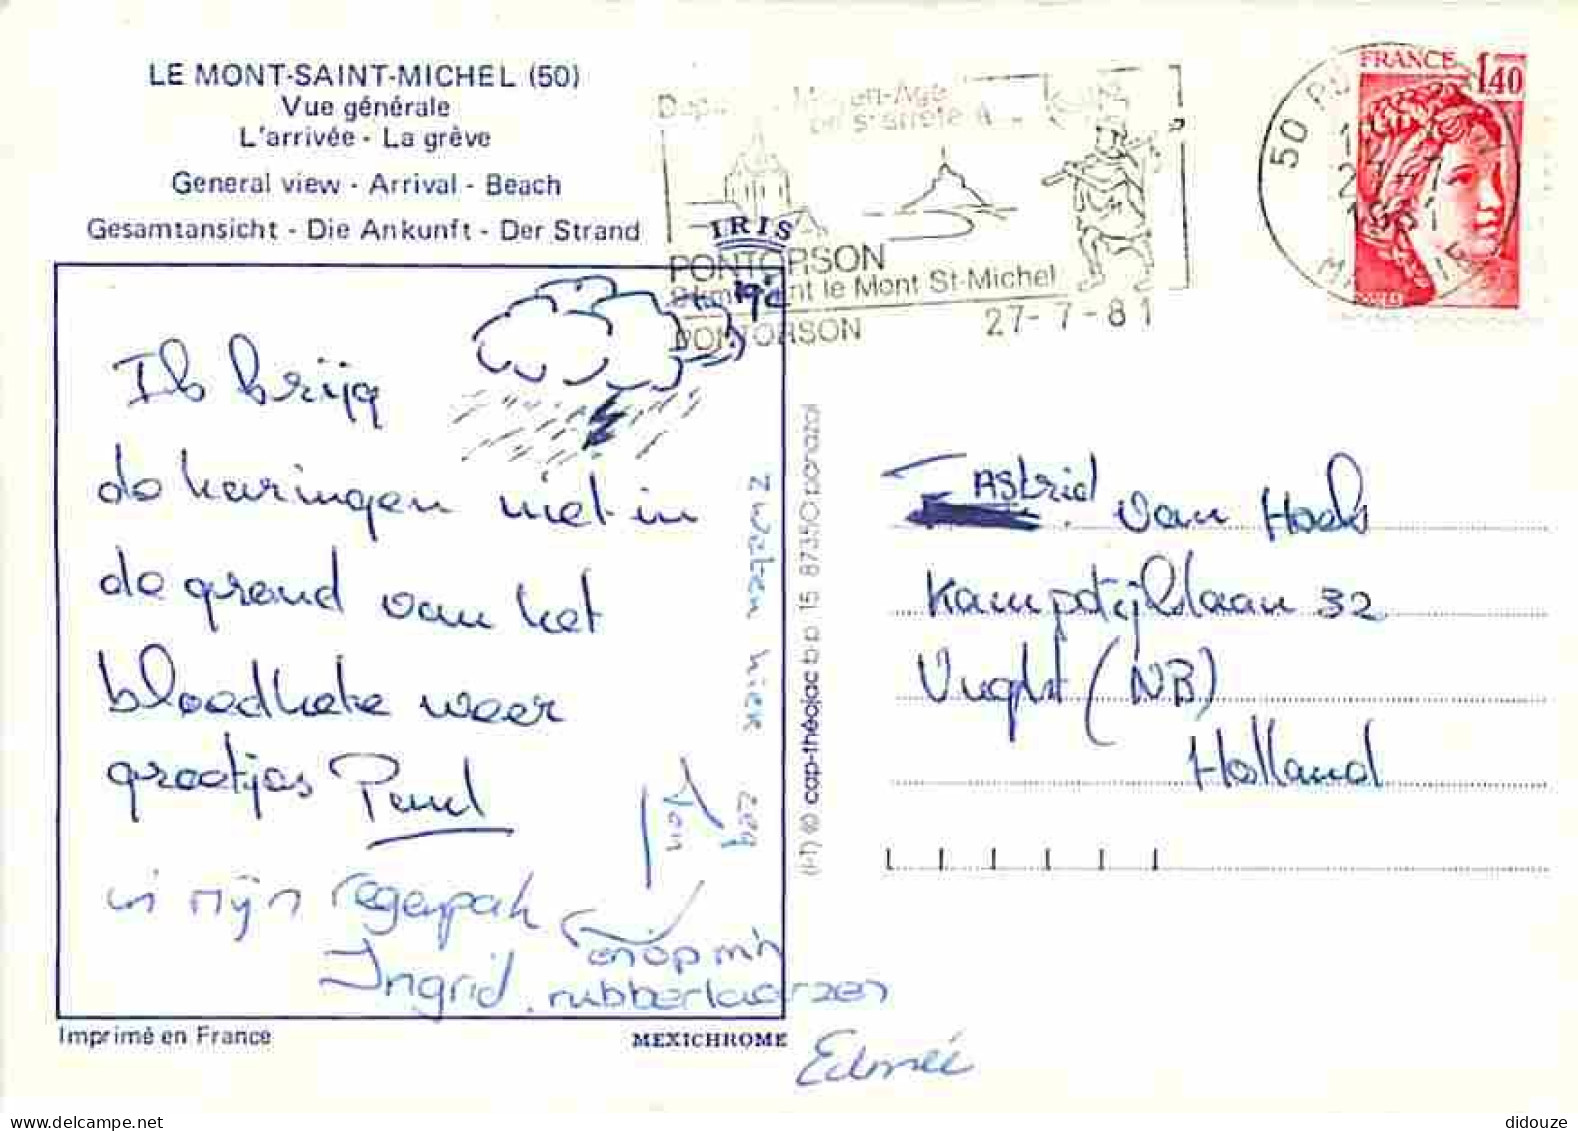 LE MONT-SAINT-MICHEL (50)
Vue générale
L'arrivée - La grève
General view - Arrival - Beach
Gesamtansicht - Die Ankunft - Der Strand
IRIS
Moyen-Age
on s'arrête à
PONTORSON
9 km avant le Mont St-Michel
PONTORSON
27-7-81
50
1981
FRANCE
1,40
Ik krijg
de haringen niet in
de grond van het
bloedhete weer
groetjes Paul
in mijn regenpak
Ingrid.
en op m'n
rubberlaarzen
Edmée
2 weken hier
zeg
Ton
Astrid van Hoek
Kampstijllaan 32
Vught (NB)
Holland
(HT) © cap-théojac b.p. 15 87350 panazol
Imprimé en France
MEXICHROME
didouze